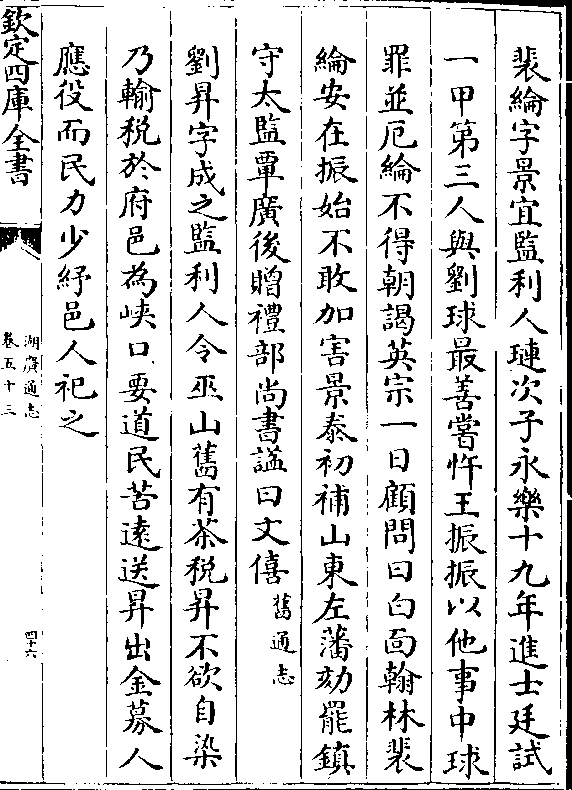 裴綸字景宜監利人璉次子永樂十九年進士廷試
一甲第三人與劉球最善嘗忤王振振以他事中球
罪並厄綸不得朝謁英宗一日顧問曰白面翰林裴
綸安在振始不敢加害景泰初補山東左藩劾罷鎮
守太監覃廣後贈禮部尚書諡曰文僖舊通志
劉昇字成之監利人令巫山舊有茶税昇不欲自染
乃輸税於府邑為峽口要道民苦遠送昇出金募人
應役而民力少紓邑人祀之
欽定四庫全書
湖廣通志
卷五十三
四十六